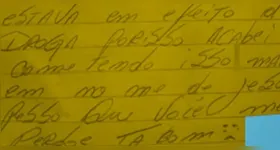 ESTAVA em efeito d
DROGA POR ISSO ACABEI
COmetendo isso mA
em no me de Jesu
Pesso Que você me
Perdoe TA Bom